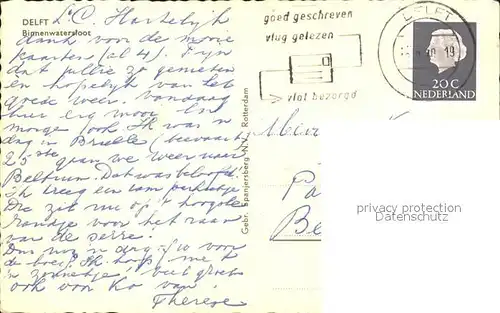 DELFT
Binnenwatersloot
L. C. Hartelijk
dank voor de mooie
kaarten (al 4). Fijn
dat jullie zo genieten
en hopelijk van het
goede weer. Vandaag
hier erg mooi
morge ook. Ik was 'n
dag in Brielle (bevaart)
25ste gaan we weer naar
Beltrum. Dat was beloofd.
Ik kreeg een
Die zit me op 't hoogste
randje voor het raam
van de serre.
Dus nog 'n dag voor
de boeg. Ik hoop met
'n zonnetje! veel groets
ook von Ko van
Therese
Gebr. Spanjersberg N.V., Rotterdam
goed geschreven
vlug gelezen
vlot bezorgd
DELFT
19
20 C
NEDERLAND
Pa
Be
privacy protected
Datenschutz